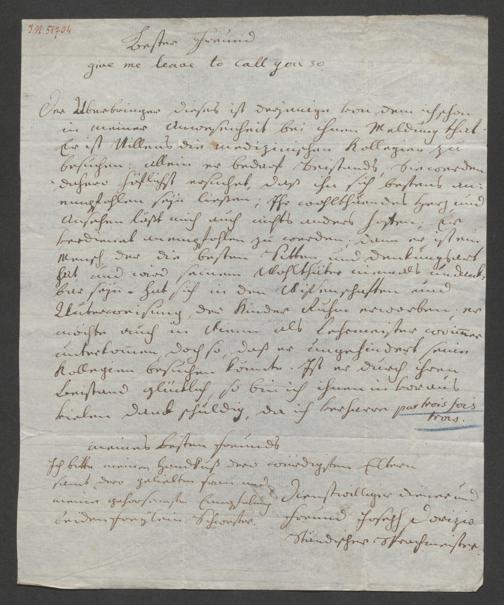 I.N. 51704
Bester Freund
give me leave to call you so
Der Überbringer dieses ist derjenige von dem ich schon
in meiner Anwesenheit bei Ihnen Meldung that.
Er ist Willens die medizinischen Kollegien zu
besuchen: allein er bedarf Beistands, Sie werden
dahero höflichst ersuchet, daß Sie sich bestens an-
empfohlen seyn ließen; Ihr wohlthuendes Herz und
Ansehen läßt mich auch nichts anders hoffen; Er
verdienet anempfohlen zu werden, denn er ist ein
Mensch der die besten Sitten und Denkungsart
hat und wird seinem Wohlthäter niemals undank-
bar seyn. hat sich in den Wissenschaften und
Unterweisung der Kinder Ruhm erworben, er
möchte auch in Wienn als Lehrmeister
unterkomen, doch so, daß er ungehindert seine
Kollegien besuchen könnte. Ist er durch Ihren
Beistand glücklich, so bin ich ihnen in voraus
vielen Dank schuldig, da ich verharre par trois fois
trois.
meines besten Freunds
Ich bitte meinen Handkuß dero würdigsten Eltern
samt dero geliebten
meine gehorsamste Empfehlung
beiden Freylein Schwester.
Dienstwilliger Diener und
Freund Joseph
Ständischer Sprachmeister